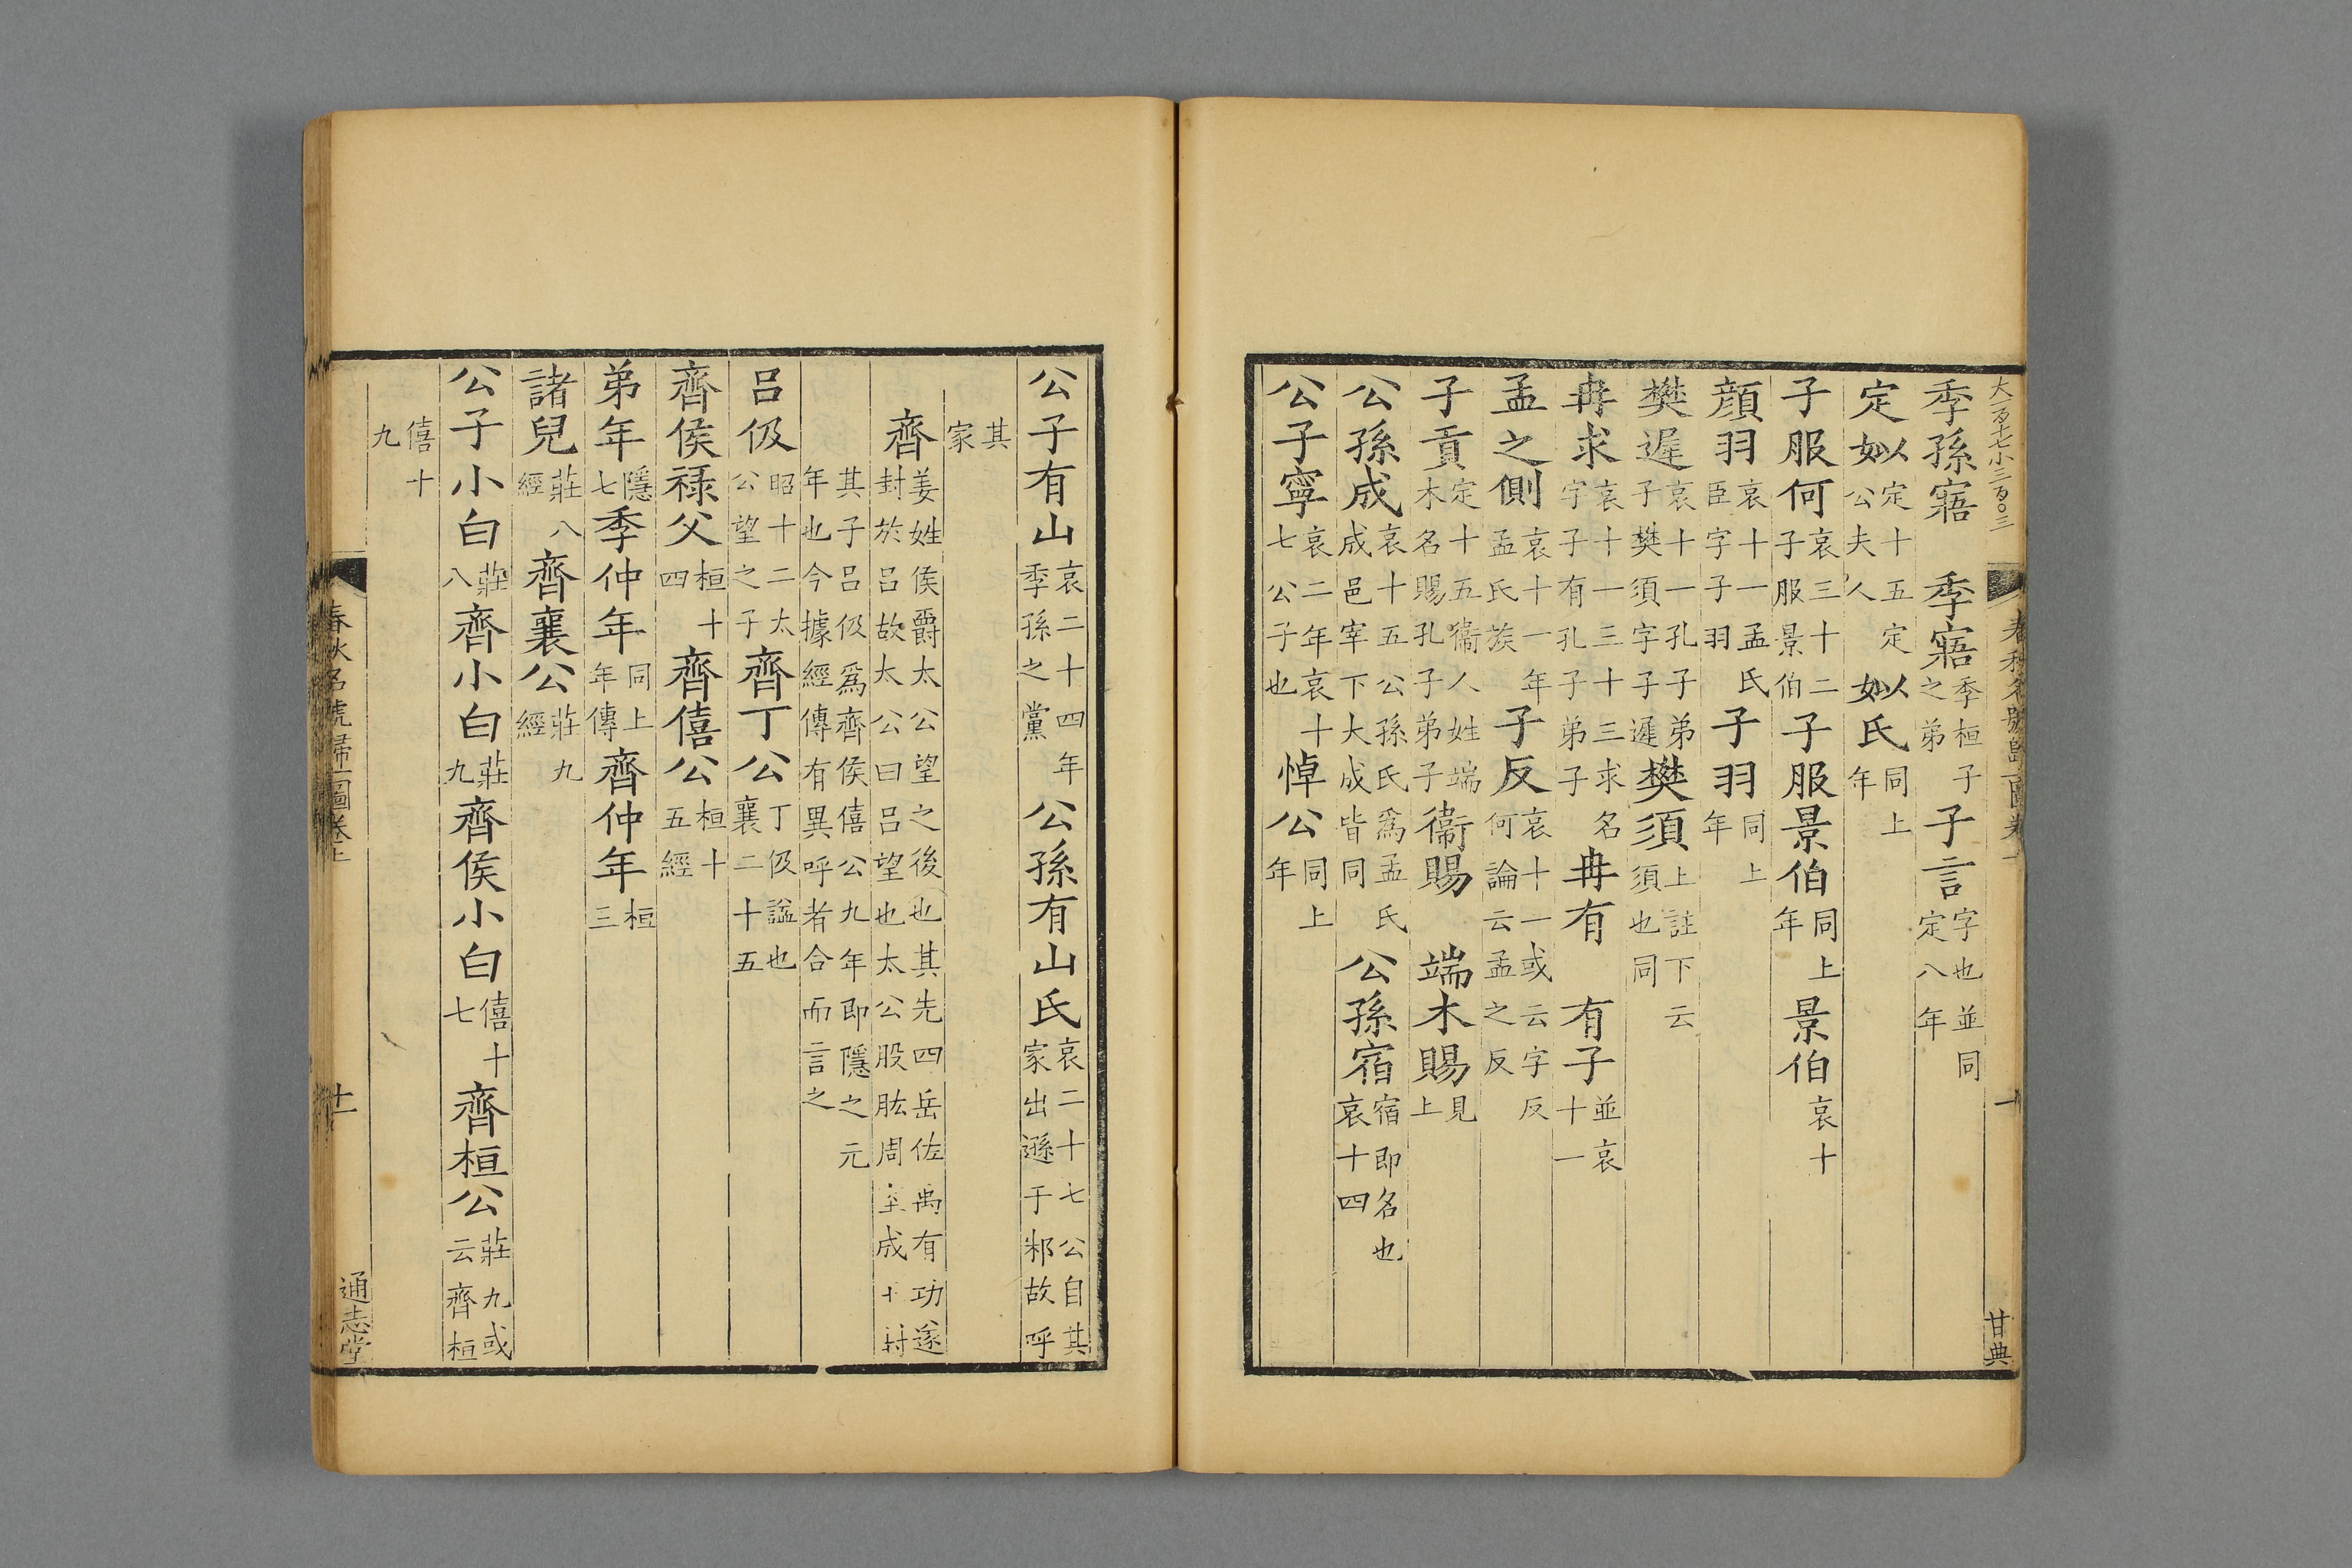 大一百十七小三百〇三
季孫寤 季寤季桓子之弟子言字也並同定八年
定姒定十五定公夫人姒氏同上年
子服何哀三十二子服景伯子服景伯同上年景伯哀十
顔羽哀十一孟氏臣字子羽子羽同上年
樊遲哀十一孔子弟子樊須字子遲樊須上註下云須也同
冉求哀十一三十三求名字子有孔子弟子冉有 有子並哀十一
孟之側哀十一年孟氏族子反哀十一或云字反何論云孟之反
子貢定十五衞人姓端木名賜孔子弟子衞賜 端木賜見上
公孫成哀十五公孫氏爲孟氏成邑宰下大成皆同公孫宿宿即名也哀十四
公子寧哀二年哀十七公子也悼公同上年
甘典
公子有山哀二十四年季孫之黨公孫有山氏哀二十七公自其家出遜于邾故呼
其家
齊姜姓侯爵太公望之後也其先四岳佐禹有功遂封於吕故太公曰吕望也太公股肱周室成 封
其子吕伋爲齊侯僖公九年即隱之元年也今據經傳有異呼者合而言之
吕伋昭十二太公望之子齊丁公丁伋諡也襄二十五
齊侯禄父桓十四齊僖公桓十五經
弟年隱七季仲年同上年傳齊仲年桓三
諸兒莊八經齊襄公莊九經
公子小白莊八齊小白莊九齊侯小白僖十七齊桓公莊九或云齊桓
僖十九
春秋名號歸一圖卷上
十一
通志堂